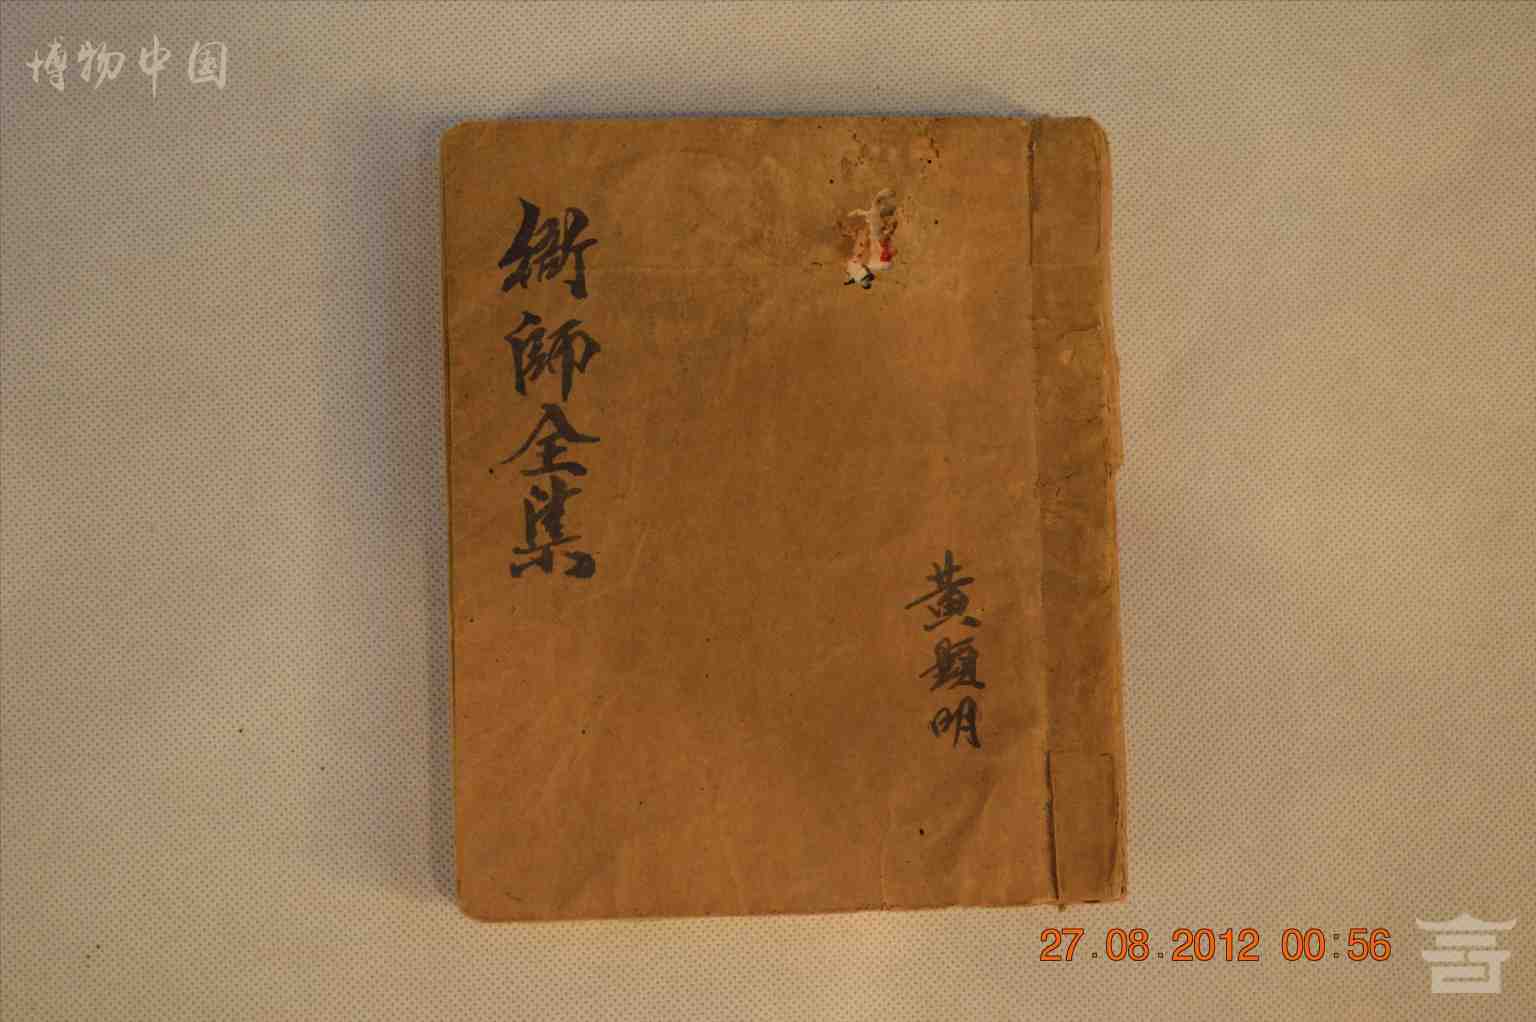 博物中国
師全集
黄顕明
27.08.2012 00:56